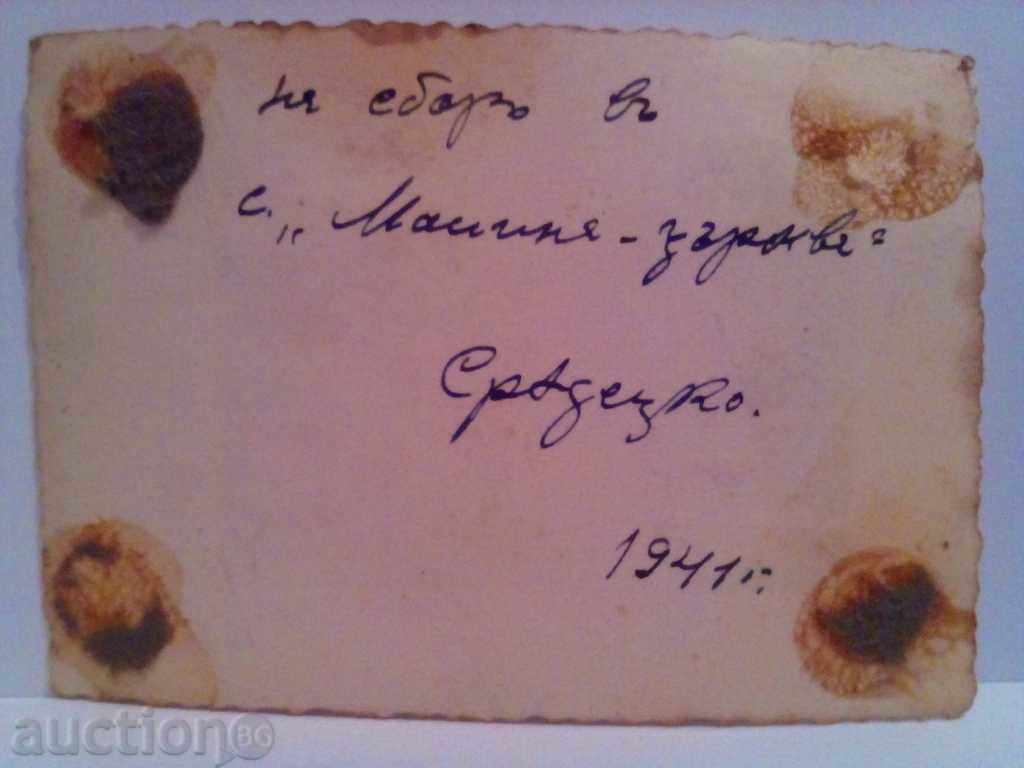 на сборъ въ
с. „Машина-църква"
Срѣдецко.
1941 г.
auctionBG